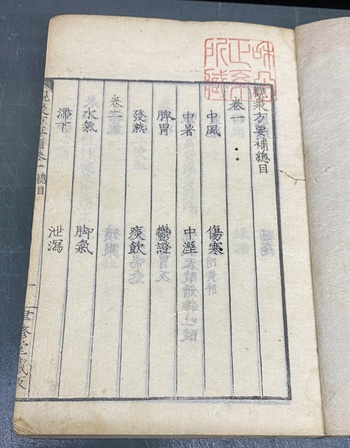 觀聚方要補總目
卷一
中風 傷寒
中暑 中溼
脾胃 鬱證
發熱 痰飲
卷二
水氣 脚氣
滯下 泄瀉
總目